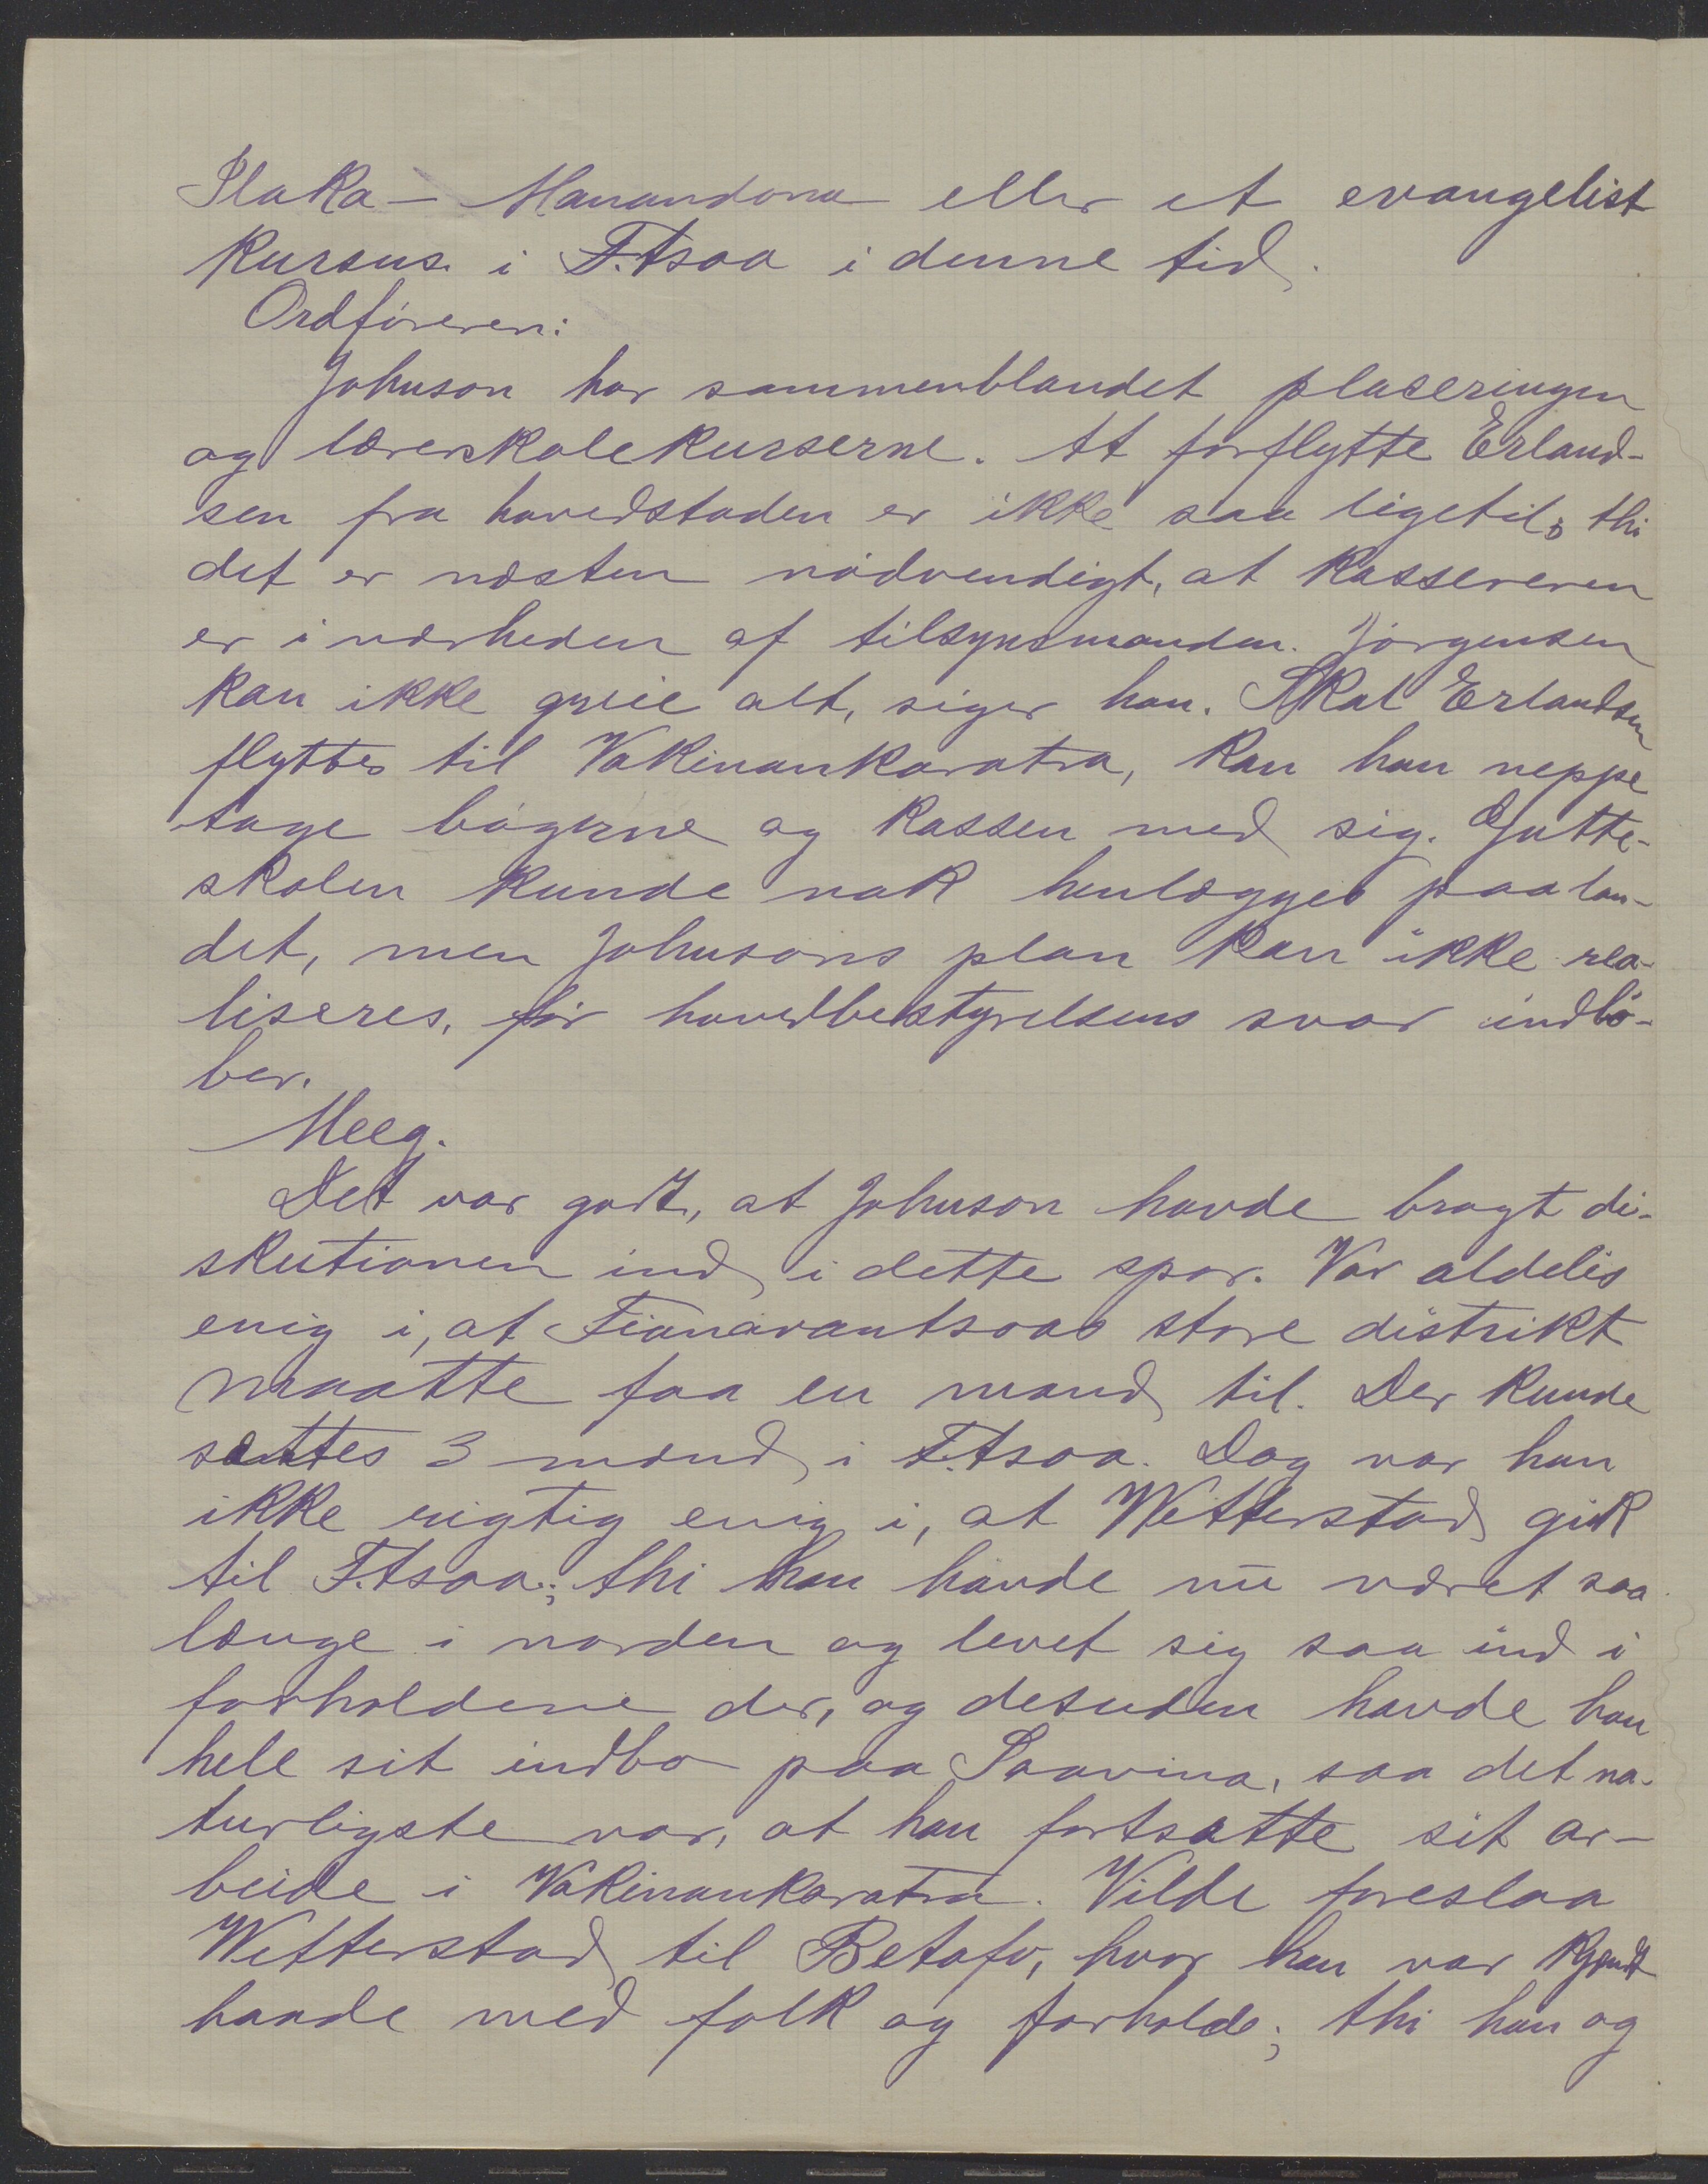 Ilaka - Manandona eller et evangelist
kursus i F.tsoa i denne tid.
Ordføreren:
Johnson har sammenblandet placeringen
og lærerskolekurserne. At forflytte Erland-
sen fra hovedstaden er ikke saa ligetil; thi
det er næsten nødvendigt, at kassereren
er i nærheden af tilsynsmanden. Jørgensen
kan ikke greie alt, siger han. Skal Erlandsen
flyttes til Vakinankaratra, kan han neppe
tage bøgerne og kassen med sig. Gutte-
skolen kunde nok henlægges paa lan-
det, men Johnsons plan kan ikke rea-
liseres, før hovedbestyrelsens svar indlø-
ber.
Meeg.
Det var godt, at Johnson havde bragt di-
skutionen ind i dette spor. Var aldeles
enig i, at Fianarantsoas store distrikt
maatte faa en mand til. Der kunde
sættes 3 mænd i F.tsoa. Dog var han
ikke rigtig enig i, at Wetterstad gik
til F.tsoa; thi han havde nu været saa
længe i norden og levet sig saa ind i
forholdene der, og desuden havde han
hele sit indbo paa Soavina, saa det na-
turligste var, at han fortsatte sit ar-
beide i Vakinankaratra. Vilde foreslaa
Wetterstad til Betafo, hvor han var kjendt
baade med folk og forholde; thi han og